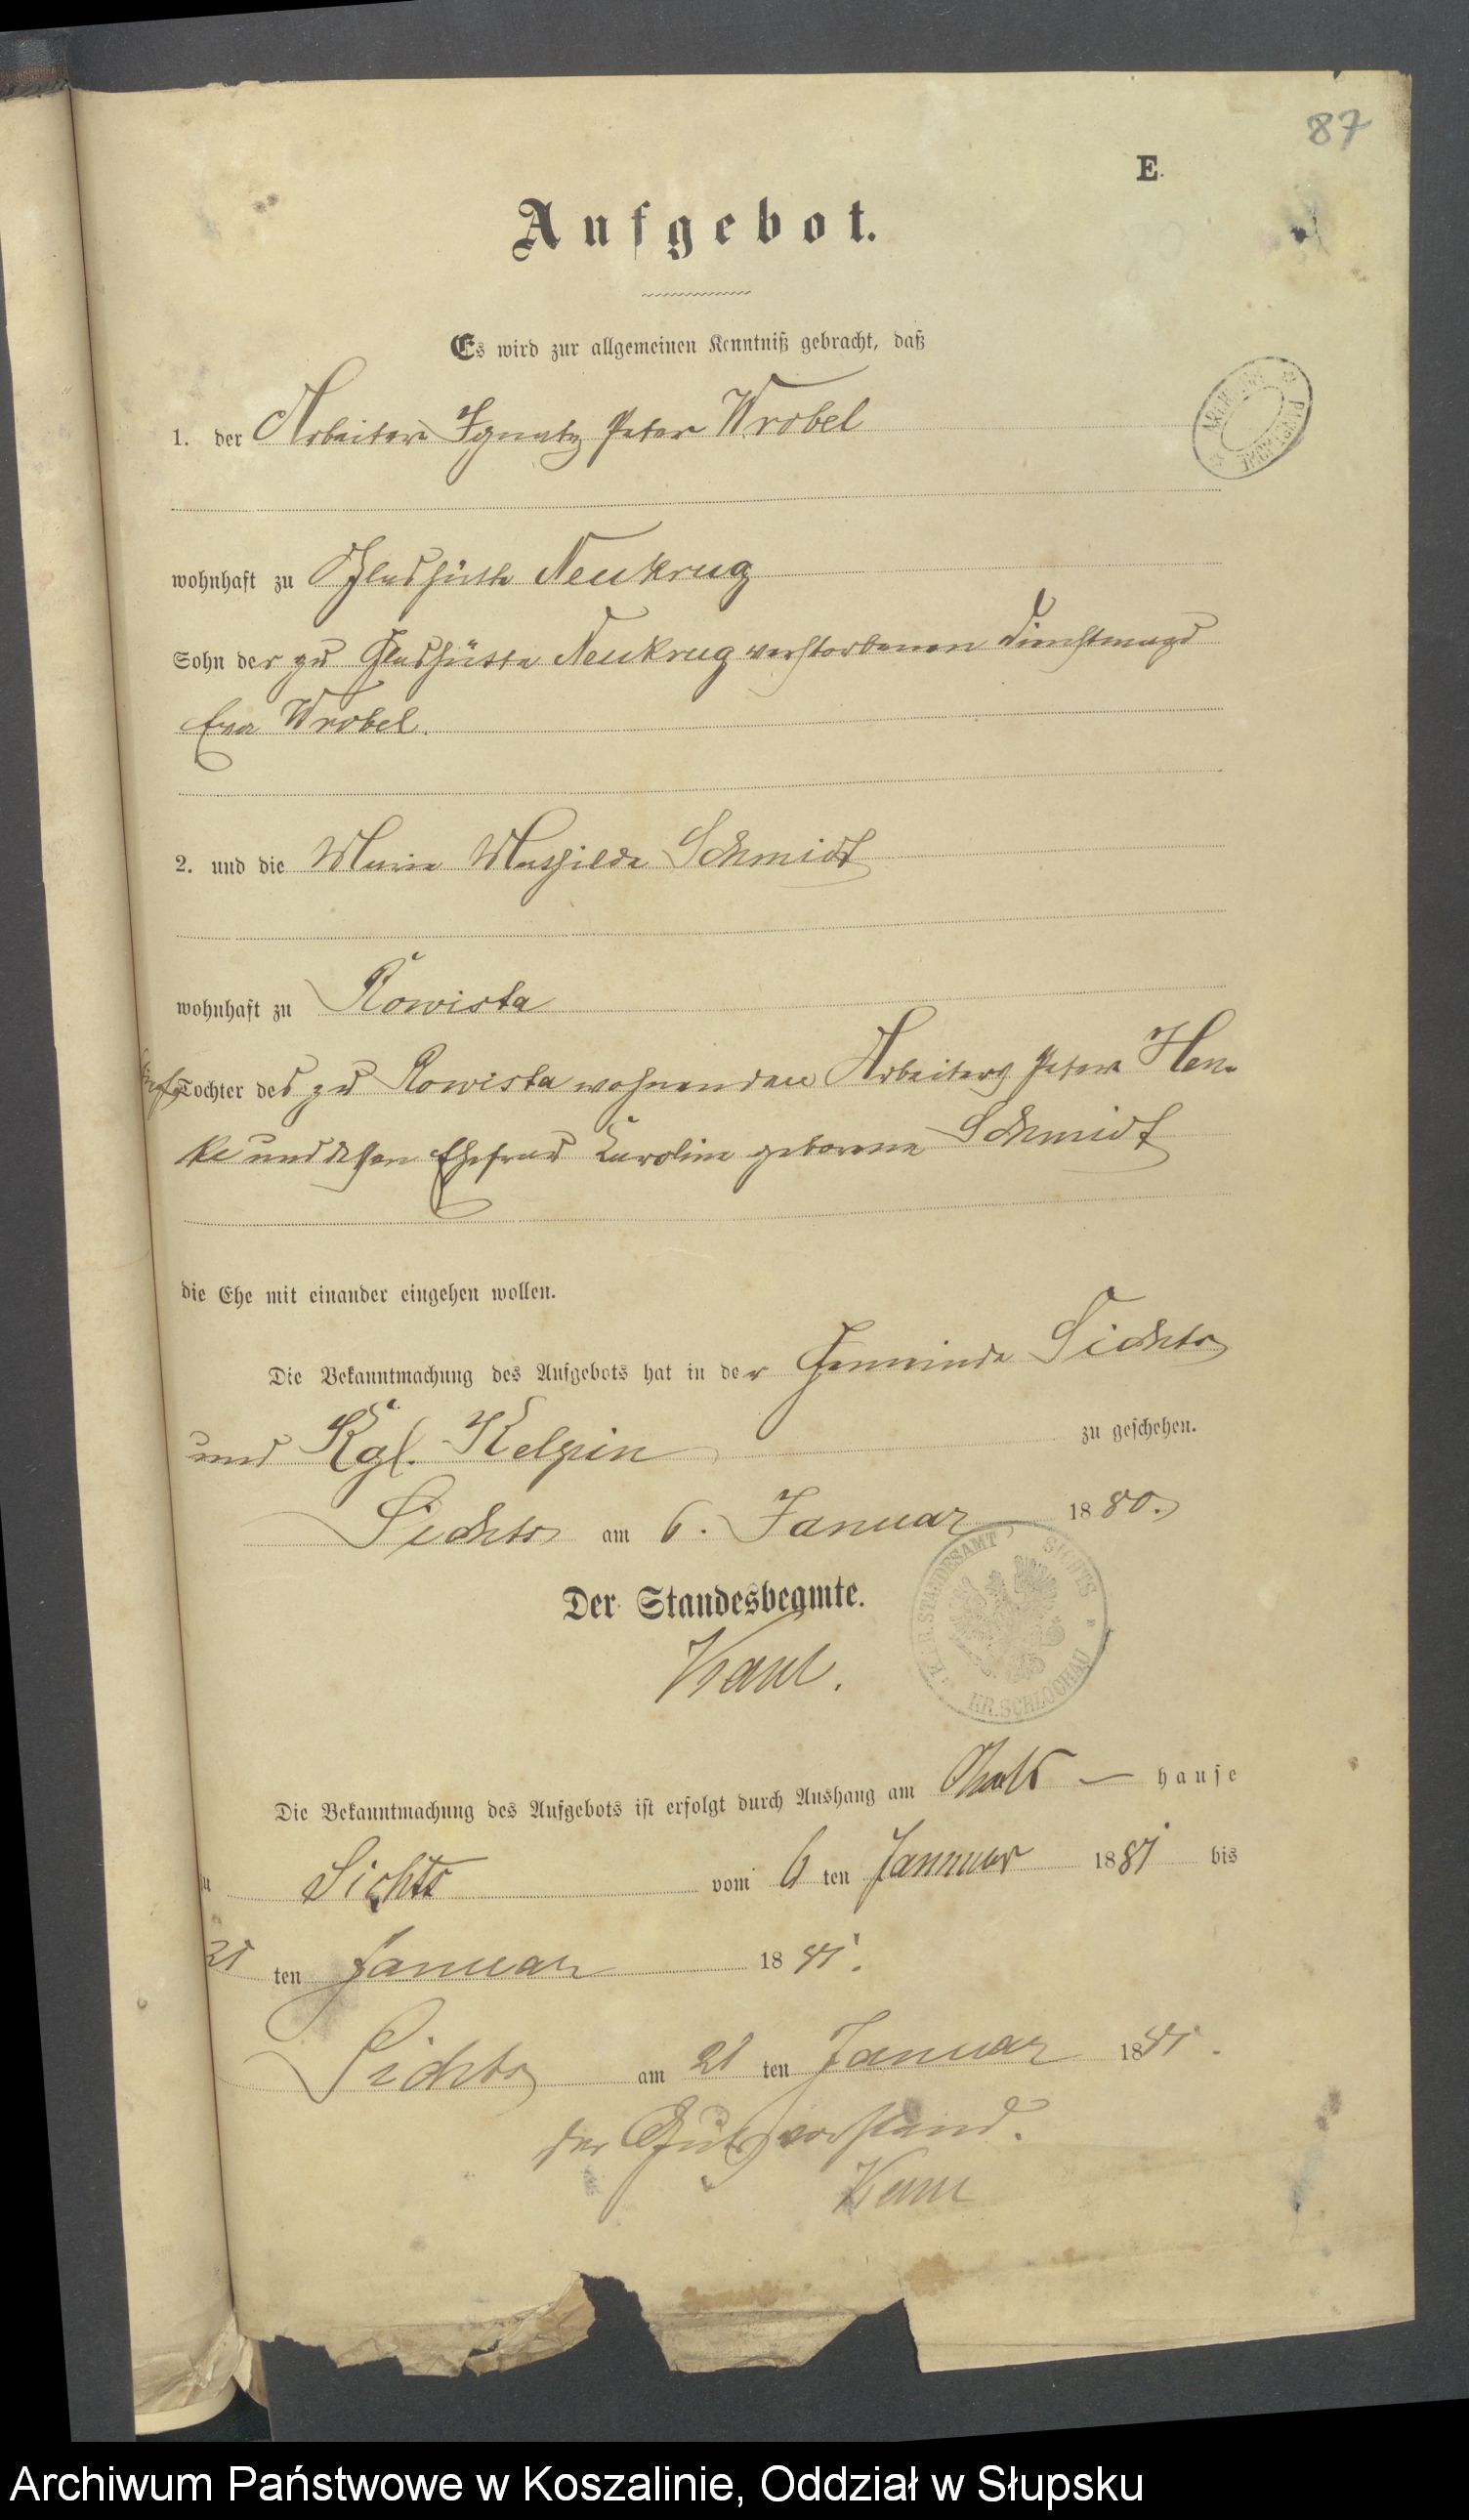 87
E.
Aufgebot.
Es wird zur allgemeinen Kenntniß gebracht, daß
1. der Arbeiter Ignatz Peter Wrobel
wohnhaft zu Glashütte Neukrug
Sohn der zu Glashütte Neukrug verstorbenen Dienstmagd
Eva Wrobel.
2. und die Marie Mathilde Schmidt
wohnhaft zu Rowista
Tochter des zu Rowista wohnenden Arbeiters Peter Hen-
ke und dessen Ehefrau Karoline geborene Schmidt
die Ehe mit einander eingehen wollen.
Die Bekanntmachung des Aufgebots hat in der Gemeinde Sichts
und Kgl. Kelpin zu geschehen.
Sichts am 6. Januar 1880.
Der Standesbeamte.
STANDESAMT SICHTS
KR. SCHLOCHAU
Die Bekanntmachung des Aufgebots ist erfolgt durch Aushang am hause
Sichts vom 6 ten Januar 1881 bis
21 ten Januar 1881.
Sichts am 21 ten Januar 1881.
der Gutsvorstand.
Archiwum Państwowe w Koszalinie, Oddział w Słupsku